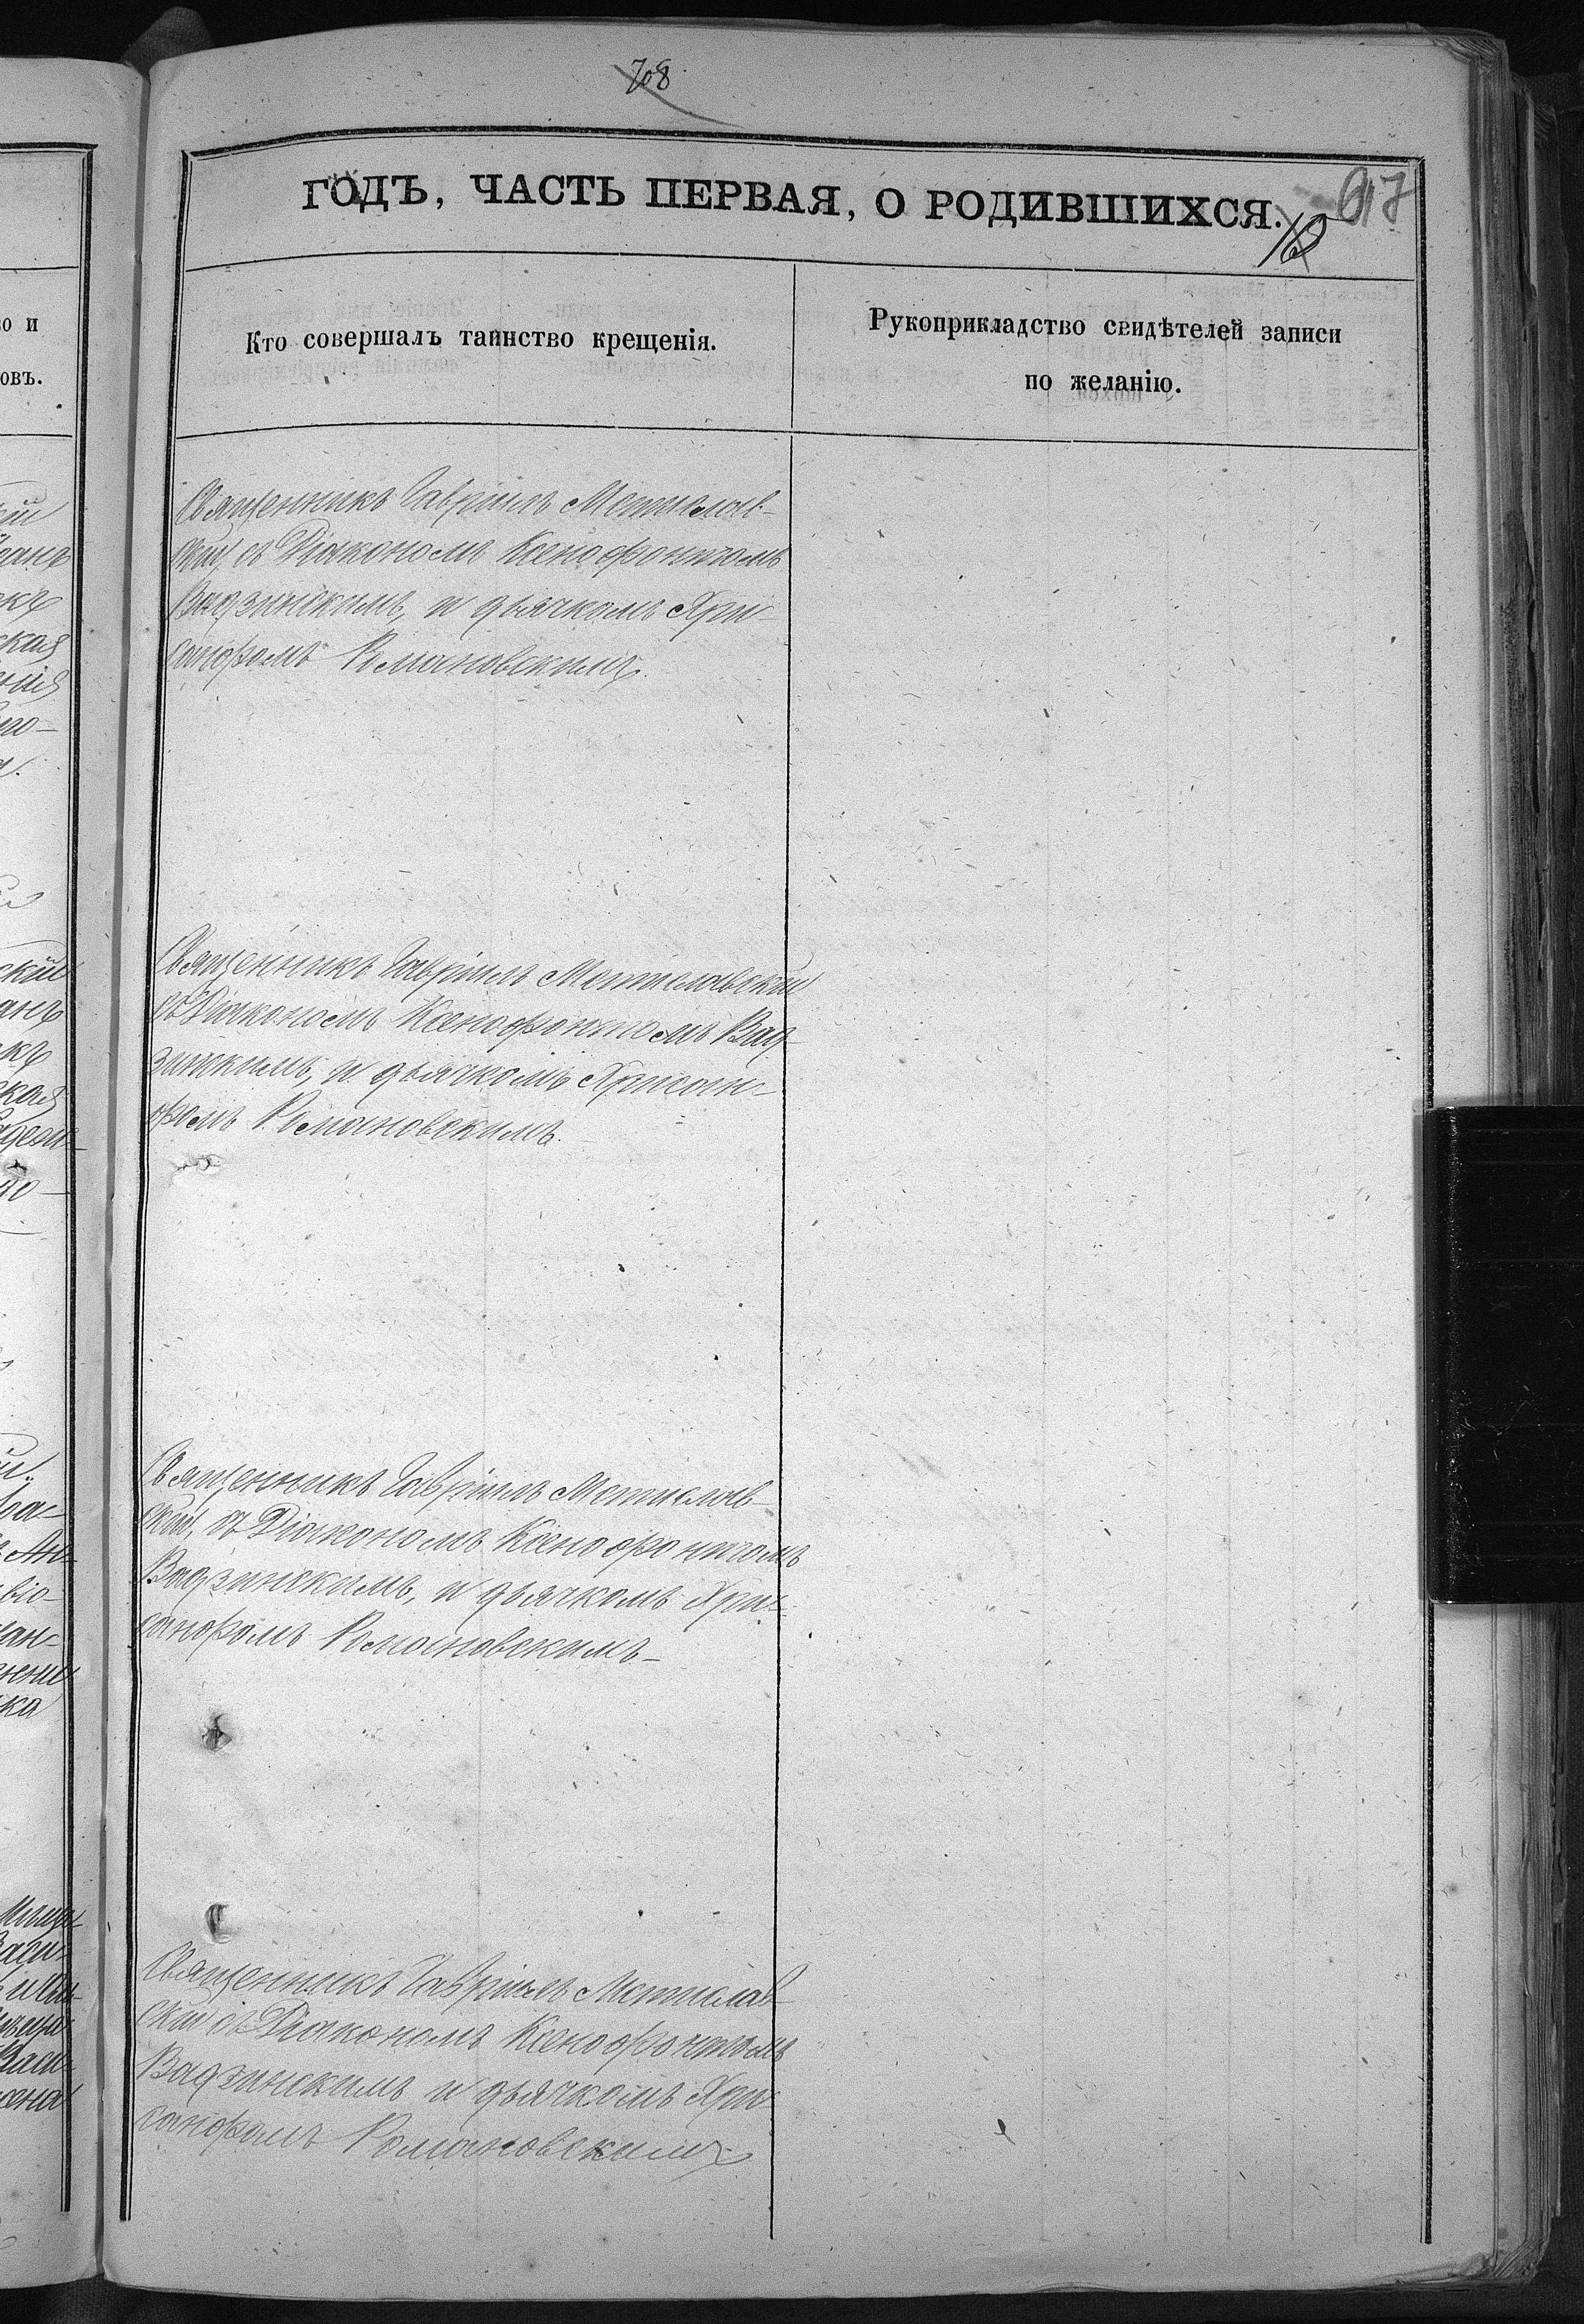 708
ГОДЪ, ЧАСТЬ ПЕРВАЯ, О РОДИВШИХСЯ.
617
Кто совершалъ таинство крещенія.
Рукоприкладство свидѣтелей записи
по желанію.
Священникъ Гавріилъ Мстислав-
скій, съ Діакономъ Ксенофонтомъ
Вадзинскимъ, и дьячкомъ Хри-
санфомъ Романовскимъ.
Священникъ Гавріилъ Мстиславскій
съ Діакономъ Ксенофонтомъ Вад-
зинскимъ, и дьячкомъ Хрисан-
фомъ Романовскимъ.
Священникъ Гавріилъ Мстислав-
скій, съ Діакономъ Ксенофонтомъ
Вадзинскимъ, и дьячкомъ Хри-
санфомъ Романовскимъ
Священникъ Гавріилъ Мстислав-
скій съ Діакономъ Ксенофонтомъ
Вадзинскимъ и дьячкомъ Хри-
санфомъ Романовскимъ